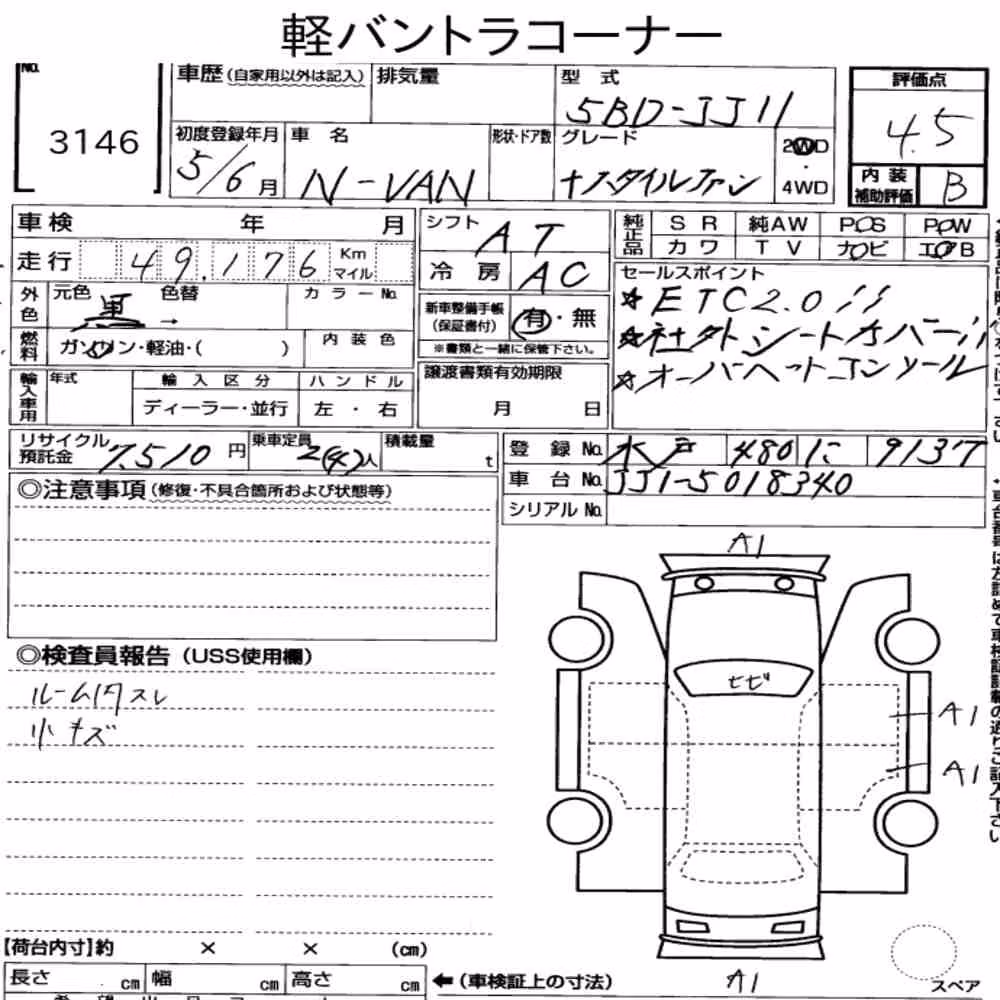 軽バントラコーナー
No.
3146
車歴(自家用以外は記入) 排気量 型式
5BD-JJ1
評価点
4.5
内装補助評価 B
初度登録年月 車名 形状・ドア数 グレード
5/6月 N-VAN +スタイルファン
2WD・4WD
車検 年 月
走行 49,176 Km マイル
シフト AT
冷房 AC
純正品 SR 純AW PS PW
カワ TV ナビ エアB
外色 元色 黒 色替 → カラーNo.
燃料 ガソリン・軽油・( ) 内装色
新車整備手帳(保証書付) 有・無
※書類と一緒に保管下さい。
セールスポイント
☆ETC2.0!!
☆社外シートカバー!!
☆オーバーヘッドコンソール
輸入車用 年式 輸入区分 ハンドル
ディーラー・並行 左・右
譲渡書類有効期限
月 日
リサイクル預託金 7,510円 乗車定員 2(4)人 積載量 t
登録No. 水戸 480 に 9137
車台No. JJ1-5018340
シリアルNo.
◎注意事項(修復・不具合箇所および状態等)
◎検査員報告(USS使用欄)
ルーム内スレ
小キズ
A1
ヒビ
A1
A1
A1
【荷台内寸】約 × × (cm)
長さ cm 幅 cm 高さ cm
←(車検証上の寸法)
スペア